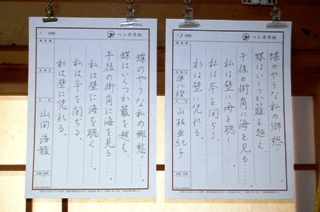 蝶のやうな私の郷愁!…
蝶はいくつか籬を越え
午後の街角に海を見る…
私は壁に海を聴く…
私は本を閉ぢる。
私は壁に凭れる。
亜紀子
蝶のやうな私の郷愁…
蝶はいくつか籬を越え、
午後の街角に海を見る…
私は壁に海を聴く…
私は本を閉ぢる。
私は壁に凭れる。
山田